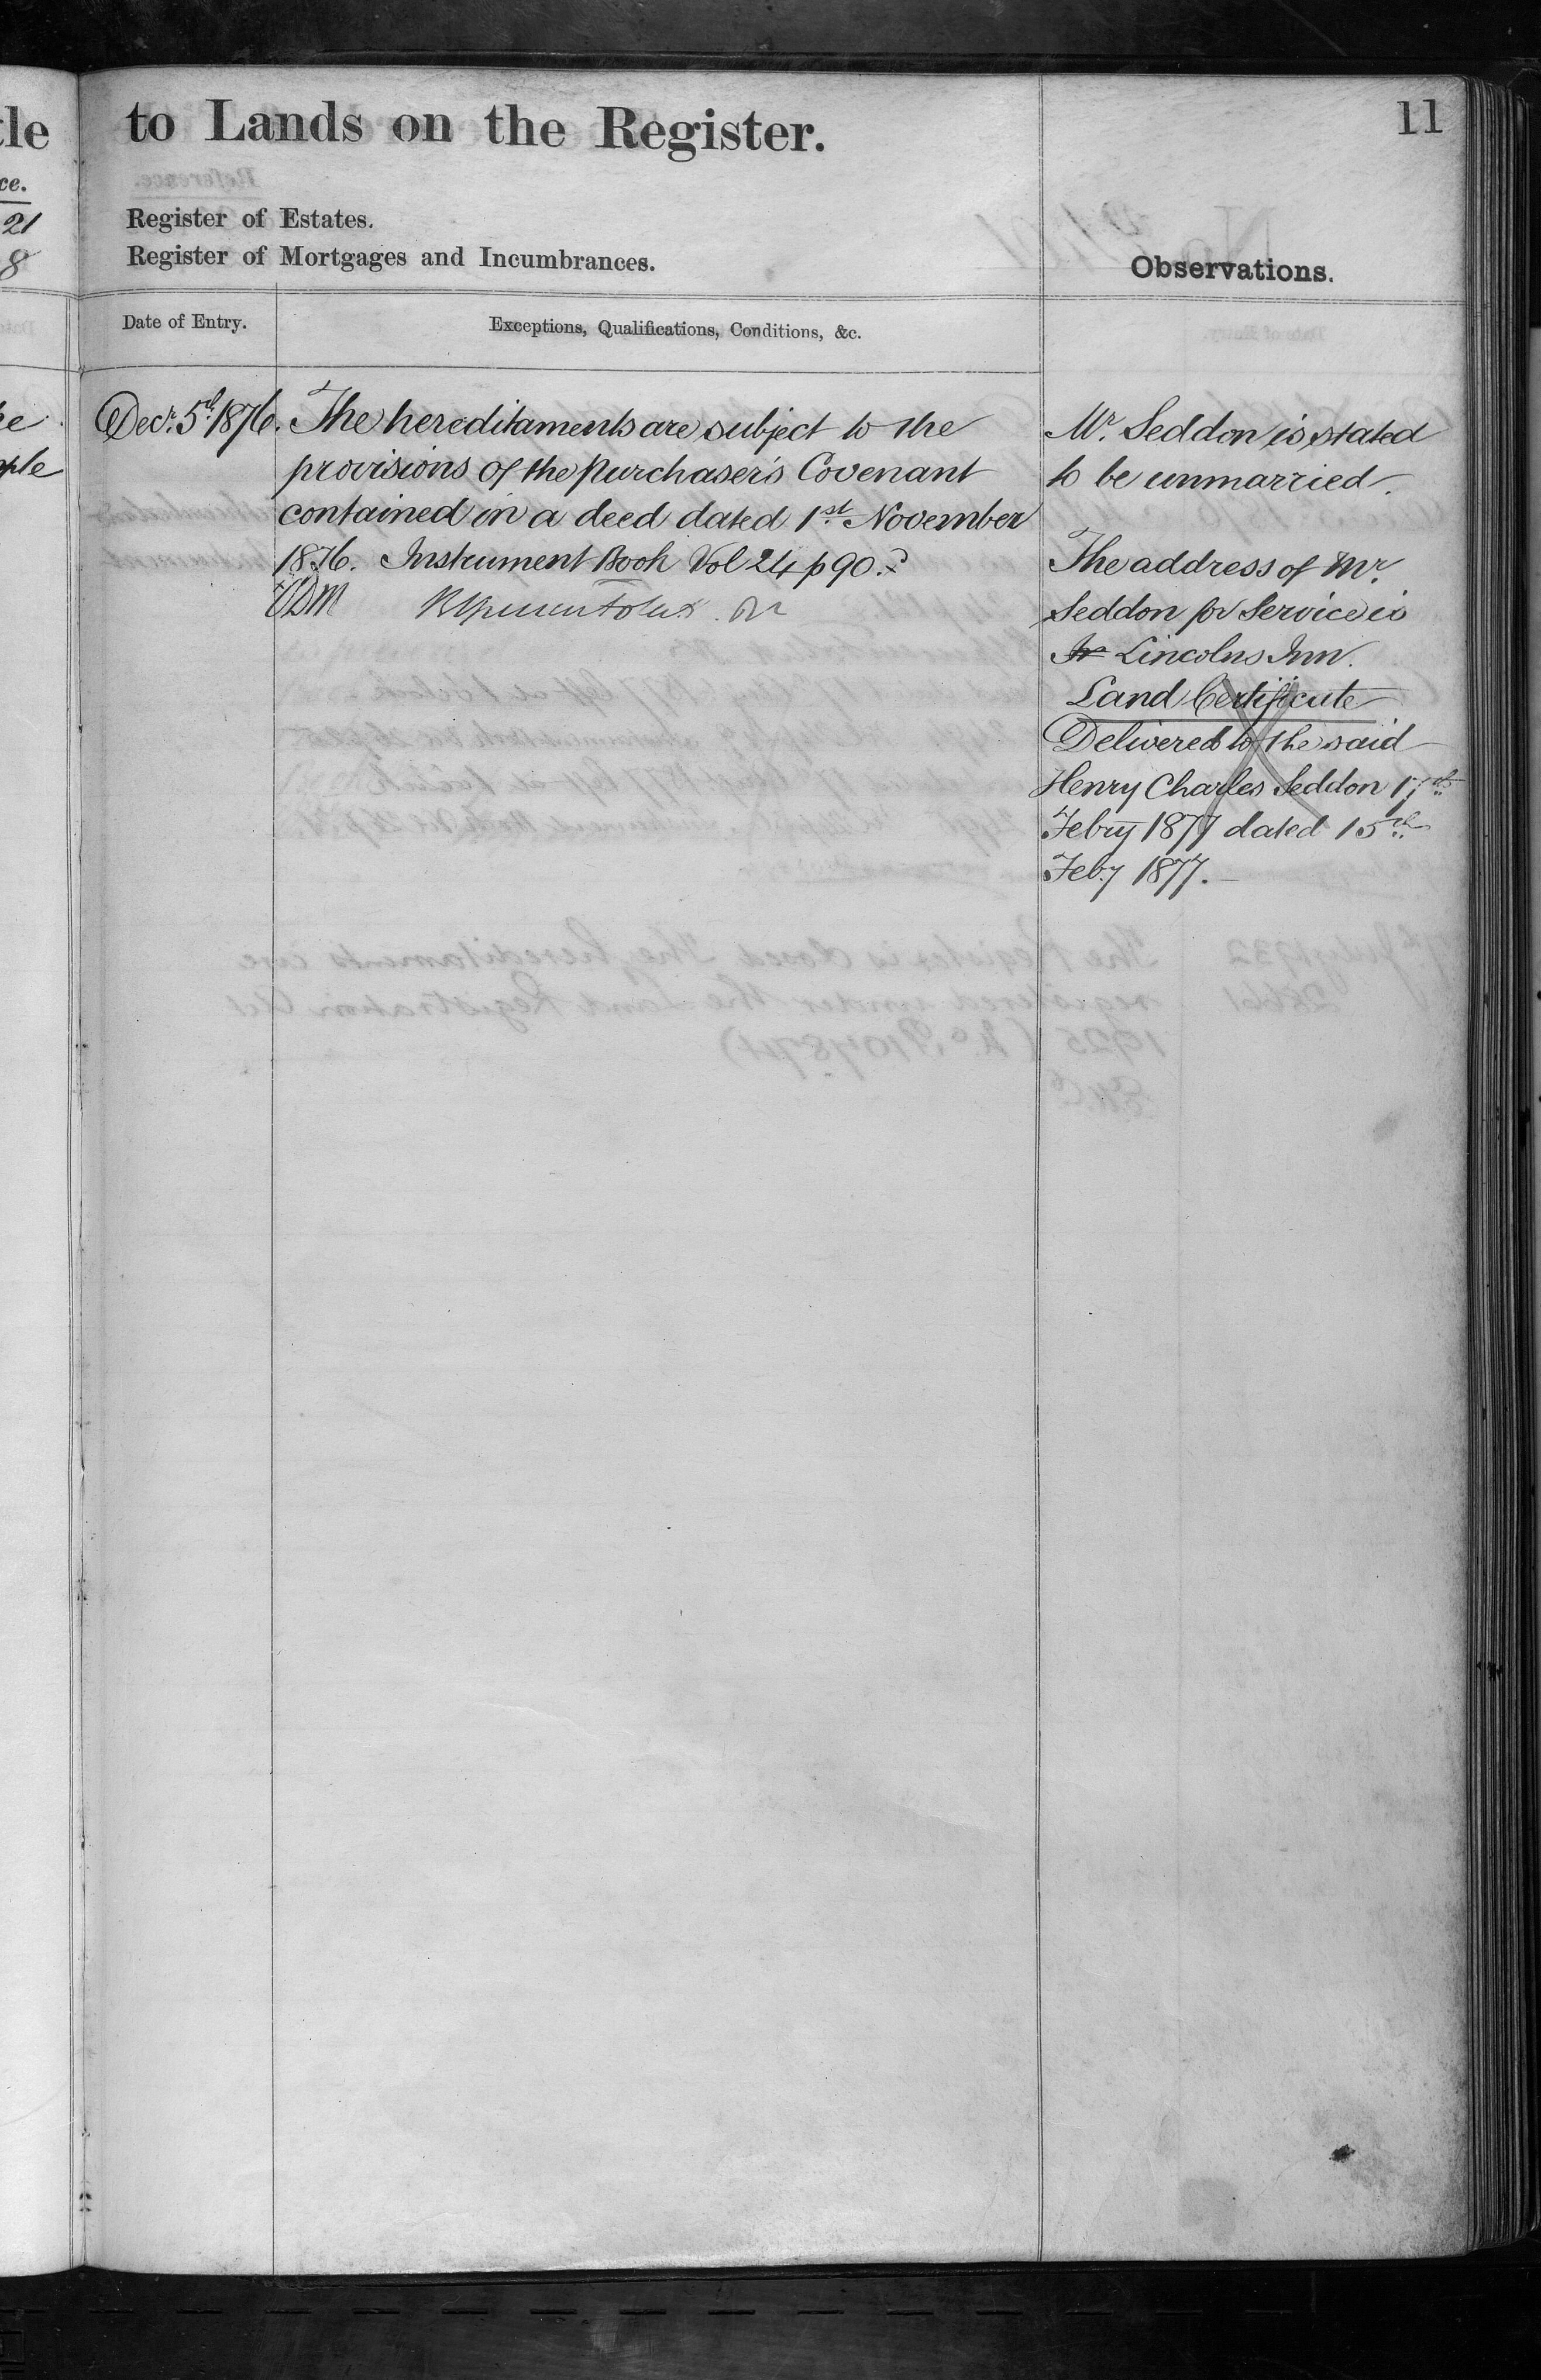 to Lands on the Register.
11
Register of Estates.
Register of Mortgages and Incumbrances.
Observations.
Date of Entry.
Exceptions, Qualifications, Conditions, &c.
Decr. 5th 1876.
The hereditaments are subject to the
provisions of the Purchaser's Covenant
contained in a deed dated 1st November
1876. Instrument Book Vol 24 p 90.
Mr. Seddon is stated
to be unmarried.
The address of Mr.
Seddon for Service is
Lincolns Inn.
Land Certificate
Delivered to the said
Henry Charles Seddon 17th
Febry 1877 dated 15th
Feby 1877.
tle
ce.
21
8
ple